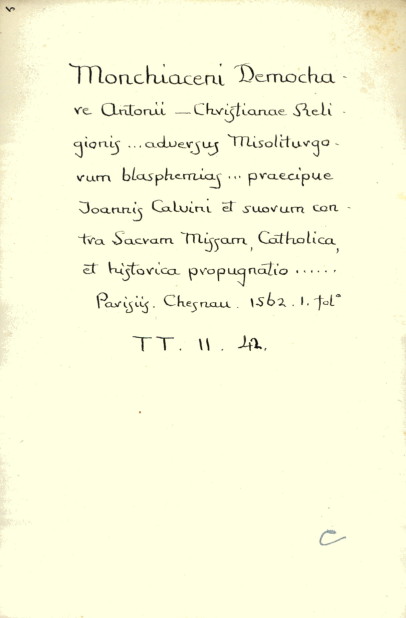 Monchiaceni Democha-
re Antonii — Christianae Reli-
gionis ... adversus Misoliturgo-
rum blasphemias ... praecipue
Joannis Calvini et suorum con-
tra Sacram Missam, Catholica,
et historica propugnatio ......
Parisiis. Chesnau. 1562. 1. fol°
TT. II. 42.
C